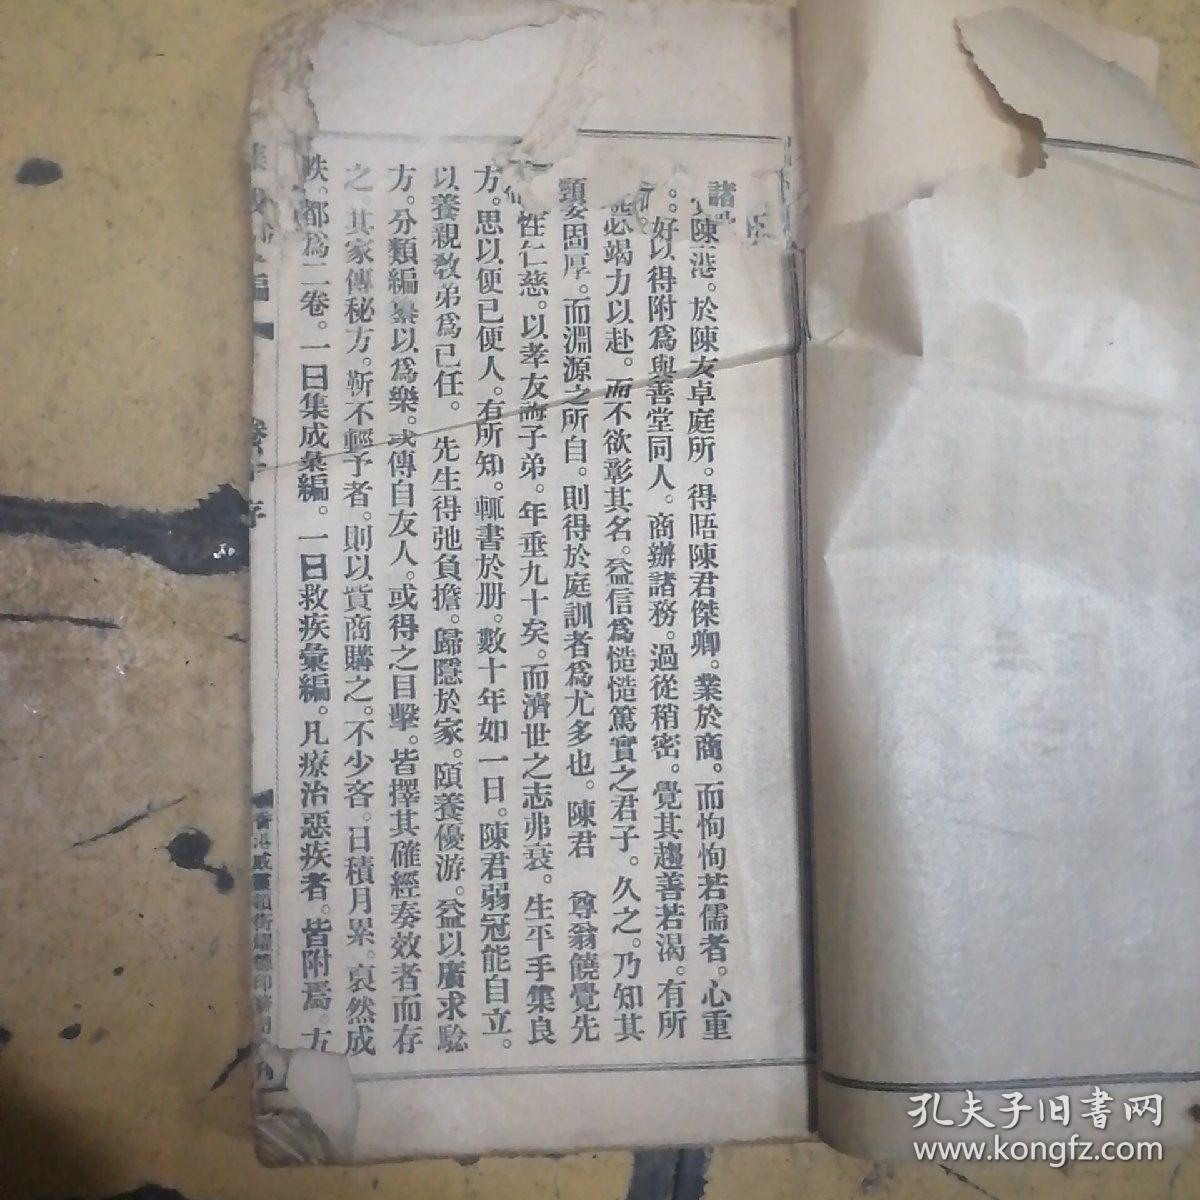 諸
陳港。於陳友卓庭所。得晤陳君傑卿。業於商。而恂恂若儒者。心重
。好以得附爲與善堂同人。商辦諸務。過從稍密。覺其趨善若渴。有所
必竭力以赴。而不欲彰其名。益信爲慥慥篤實之君子。久之。乃知其
固厚。而淵源之所自。則得於庭訓者爲尤多也。陳君 尊翁饒覺先
性仁慈。以孝友誨子弟。年垂九十矣。而濟世之志弗衰。生平手集良
方。思以便已便人。有所知。輒書於册。數十年如一日。陳君弱冠能自立。
以養親教弟爲已任。先生得弛負擔。歸隱於家。頤養優游。益以廣求驗
方。分類編纂以爲樂。或傳自友人。或得之目擊。皆擇其確經奏效者而存
之。其家傳秘方。靳不輕予者。則以貲商購之。不少吝。日積月累。裒然成
帙。都爲二卷。一曰集成彙編。一曰救疾彙編。凡療治惡疾者。皆附焉。方
編 序
香港威靈頓街 印務
孔夫子旧书网
www.kongfz.com